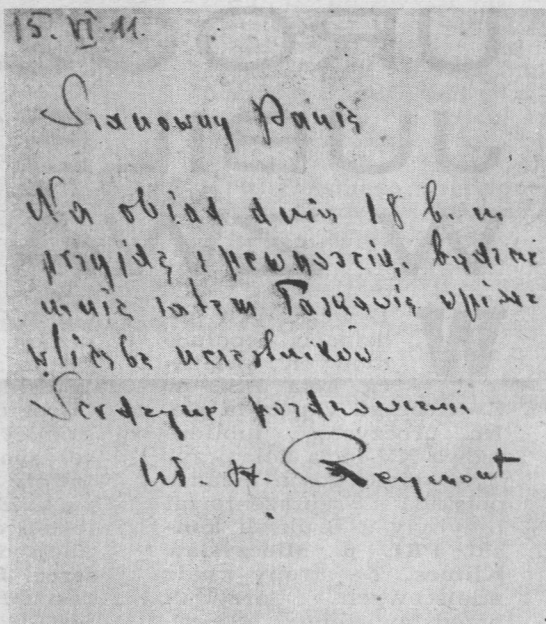 15. VI. 11.
Szanowny Panie
Na obiad dnia 18 b. m.
przyjdę z pewnością, będzie
mnie zatem łaskawie wpisać
w liczbę uczestników
Serdeczne pozdrowienia
Wł. St. Reymont